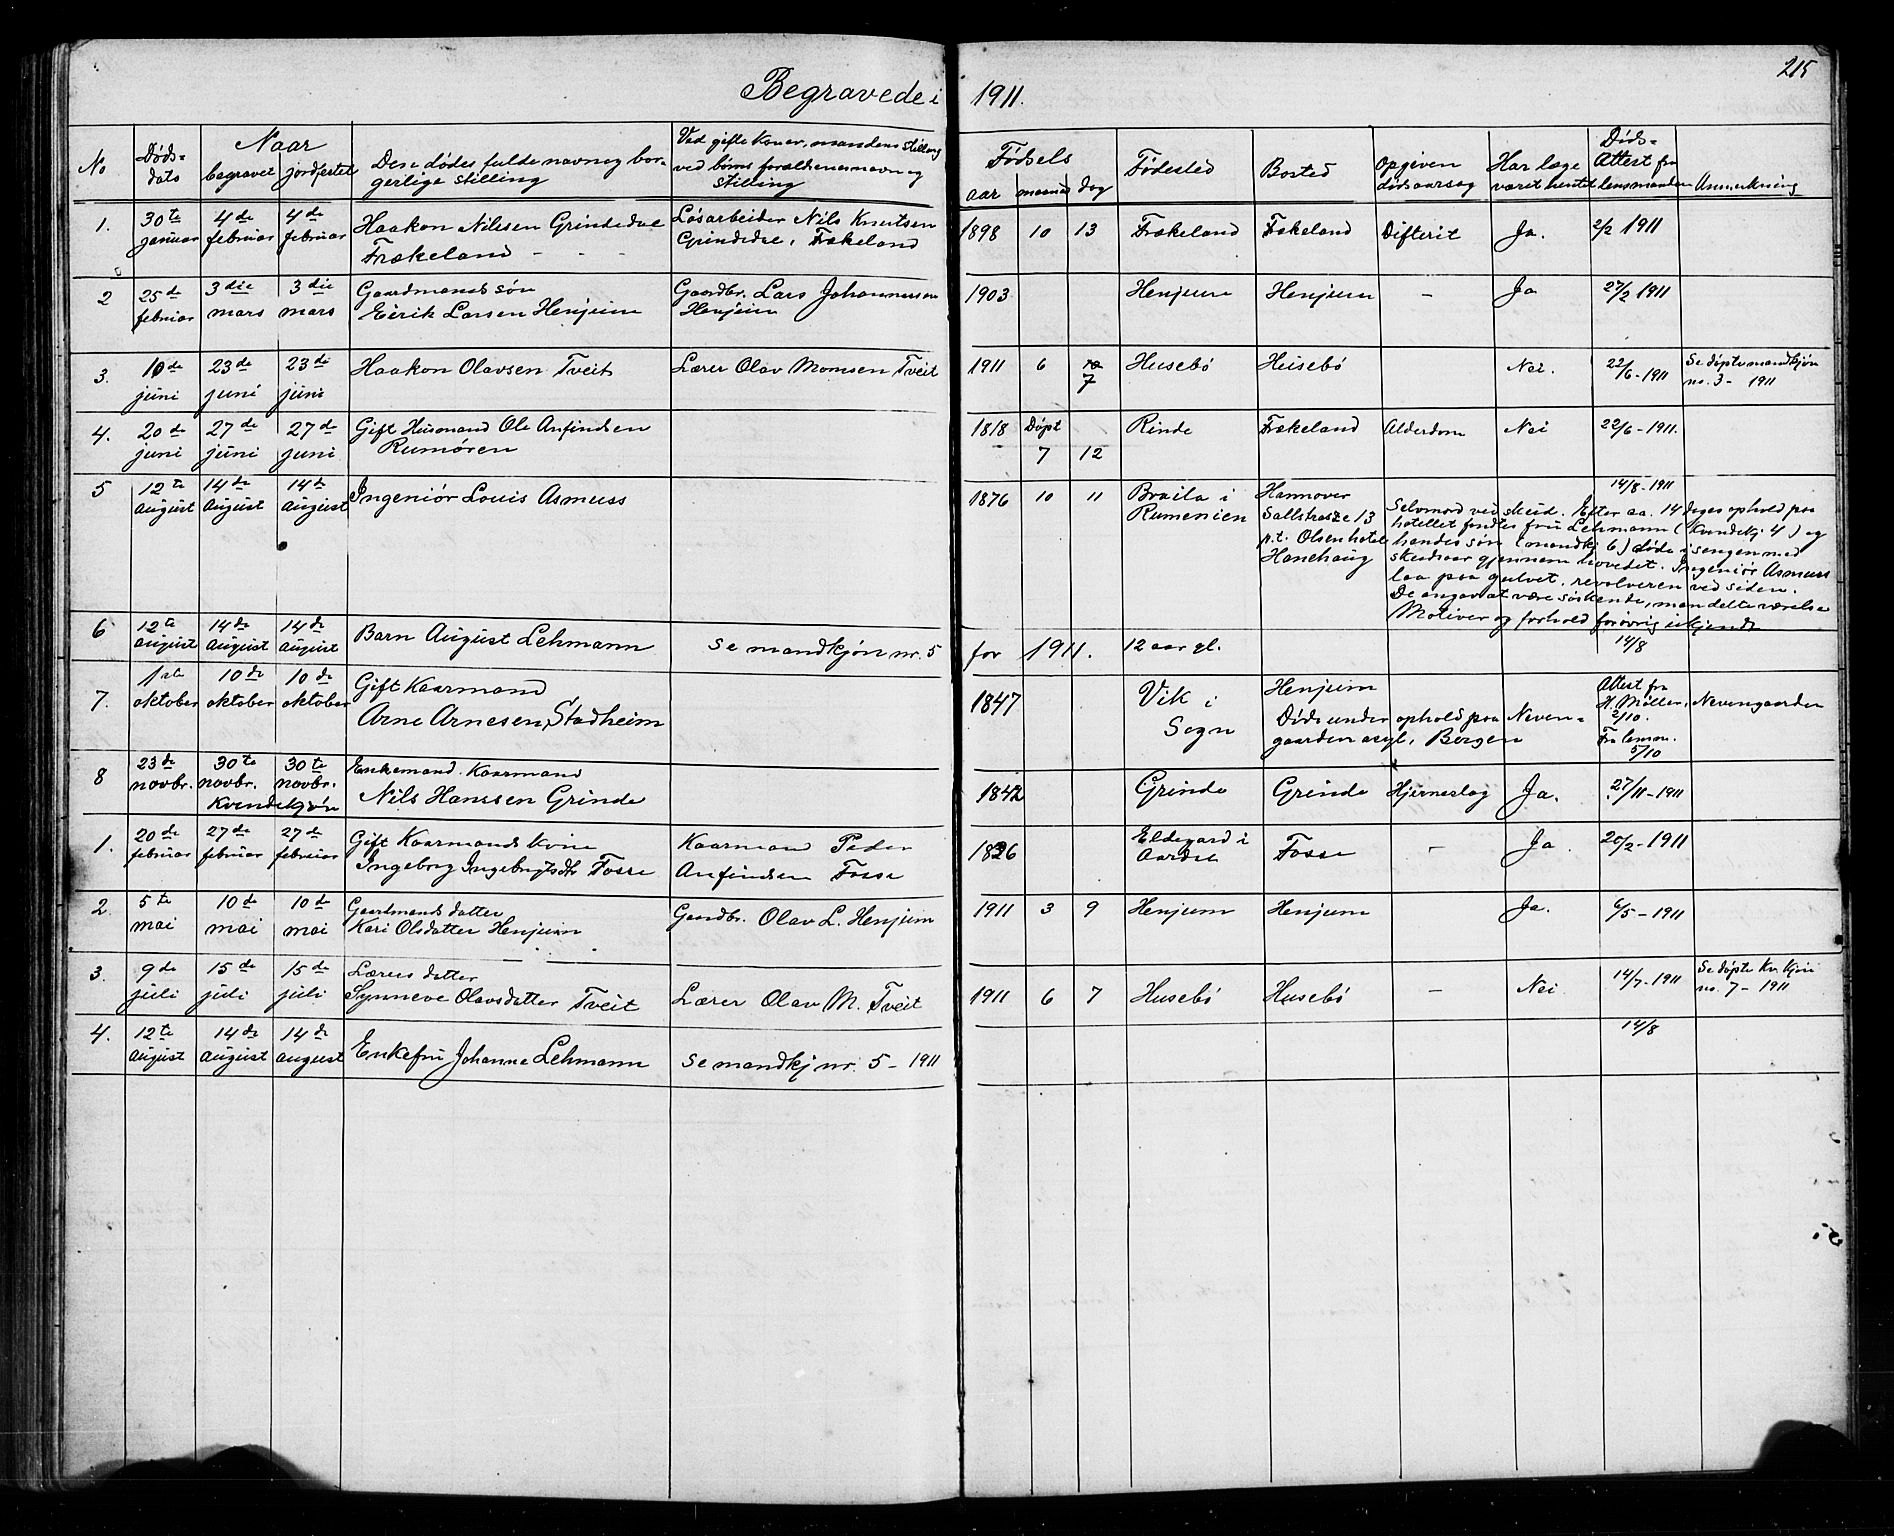 215
Begravede i 1911.
No
Døds-
dato
Naar
begravet jordfestet
Den dødes fulde navn og bor-
gerlige stilling
Ved gifte koner, mandens stilling
ved børns forældrenes navn og
stilling
Fødsels
aar maaned dag
Fødested
Bosted
Opgiven
dødsaarsag
Har læge
været hentet
Døds-
Attest fra
lensmanden
Anmerkning
1.
30te januar
4de februar
4de februar
Haakon Nilssen Grindedal
Frækeland
Løsarbeider Nils Knutsen
Grindedal, Frækeland
1898 10 13 Frækeland Frækeland Difterit Ja. 2/2 1911
2
25de februar
3die mars
3die mars
Gaardmands søn
Eirik Larsen Henjum
Gaardbr. Lars Johannessen
Henjum
1903 Henjum Henjum - Ja 27/2 1911
3.
10de juni
23de juni
23de juni
Haakon Olavsen Tveit
Lærer Olav Monsen Tveit
1911 6 7 Husebø Husebø Nei. 22/6-1911
Se døpte mandkjøn
no. 3 - 1911
4.
20de juni
27de juni
27de juni
Gift Husmand Ole Anfindsen
Rumøren
1818 Døpt
7 12
Rinde Frækeland Alderdom Nei 22/6-1911.
5
12te August
14de August
14de August
Ingeniør Louis Asmuss
1876 10 11
Braila i
Rumenien
Hannover
Sallstrasze 13
p.t. Olsen hotel
Hanehaug
14/8-1911
Selvmord ved skud. Efter ca. 14 dages ophold paa
hotellet fandtes fru Lehmann (Kvindekj 4) og
hendes søn (mandkj 6) døde i sengen med
skudsaar gjennem hovedet. Ingeniør Asmuss
laa paa gulvet, revolveren ved siden.
De angav at være søskende, men dette værelse
Motiver og forhold forøvrig ukjendt
6
12te august
14de August
14de august
Barn August Lehmann
se mandkjøn nr. 5
for 1911. 12 aar gl. 14/8
7.
1ste oktober
10de oktober
10de oktober
Gift Kaarmand
Arne Arnesen Stadheim
1847
Vik i
Sogn
Henjum
Døde under ophold paa Neven-
gaarden asyl, Bergen
Attest fra
H. Møller, Nevengaarden
2/10.
Fra lensm.
5/10
8
23de novbr.
30te novbr.
30te novbr.
Enkemand. Kaarmand
Nils Hanssen Grinde
1842 Grinde Grinde Hjerneslag Ja. 27/11-1911
Kvindekjøn
1.
20de februar
27de februar
27de februar
Gift Kaarmands kone
Ingeborg Ingebrigtsdtr Fosse
Kaarmand Peder
Anfindsen Fosse
1826
Eldegard i
Aardal
Fosse - Ja 20/2-1911
2.
5te mai
10de mai
10de mai
Gaardmands datter
Kari Olsdatter Henjum
Gaardbr. Olav L. Henjum
1911 3 9 Henjum Henjum Ja. 6/5-1911
3.
9de juli
15de juli
15de juli
Lærers datter
Synneve Olavsdatter Tveit
Lærer Olav M. Tveit
1911 6 7 Husebø Husebø - Nei 14/7-1911
Se døpte Kv. kjøn
no. 7 - 1911
4.
12te august
14de august
14de august
Enkefru Johanne Lehmann
se mandkj nr. 5 - 1911
14/8